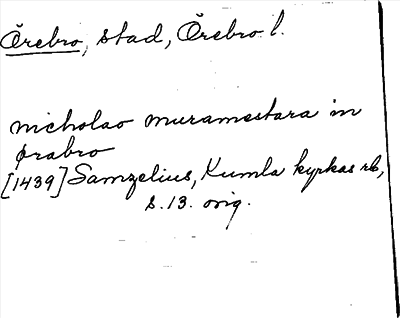 Örebro, stad, Örebro l.
nicholao muramestara in
ørabro
[1439] Samzelius, Kumla kyrkas rb,
s. 13. orig.